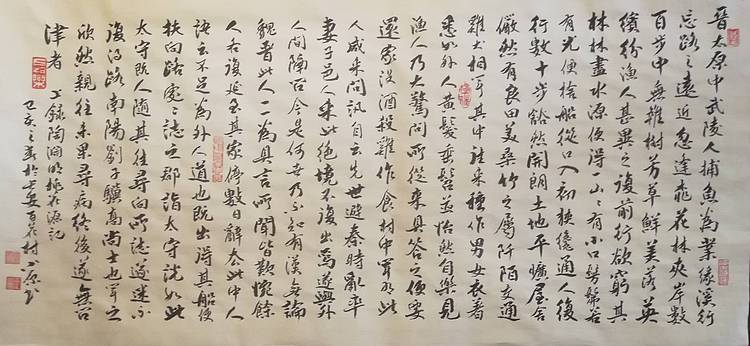 晉太原中武陵人捕魚為業緣溪行
忘路之遠近忽逢桃花林夾岸數
百步中無雜樹芳草鮮美落英
繽紛漁人甚異之復前行欲窮其
林林盡水源便得一山々有小口髣髴若
有光便捨船從口入初極狹纔通人復
行數十步豁然開朗土地平曠屋舍
儼然有良田美桑竹之屬阡陌交通
雞犬相聞其中往來種作男女衣着
悉如外人黃髮垂髫並怡然自樂見
漁人乃大驚問所從來具答之便要
還家設酒殺雞作食村中聞有此
人咸來問訊自云先世避秦時亂率
妻子邑人來此絕境不復出焉遂與外
人間隔問今是何世乃不知有漢無論
魏晉此人一一為具言所聞皆歎惋餘
人各復延至其家停數日辭去此中人
語云不足為外人道也既出得其船便
扶向路處々誌之郡詣太守說如此
太守既人隨其往尋向所誌遂迷不
復得路南陽劉子驥高尚士也聞之
欣然親往未果尋病終後遂無問
津者 上錄陶淵明桃花源記
己亥之春於長安百花村 原書